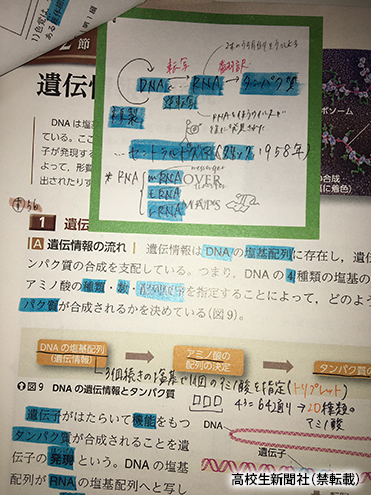 節
遺伝情
DNA は塩基
ている。ここ
子が発現する
よって，形質
出されたりす
転写
翻訳
DNA → RNA → タンパク質
逆転写
複製
…セントラルドグマ(クリック 1958年)
*RNA
messenger
mRNA
tRNA
rRNA
OVER
MAPS
1 遺伝
A 遺伝情報の流れ 遺伝情報は DNA の塩基配列に存在し，遺伝
ンパク質の合成を支配している。つまり，DNA の 4 種類の塩基の
アミノ酸の種類・数・を指定することによって，どのよう
パク質が合成されるかを決めている(図 9)。
DNA の塩基配列
(遺伝情報)
アミノ酸の
配列の決定
タンパク質の
3個続きの塩基で1個のアミノ酸を指定(トリプレット)
図9 DNA の遺伝情報とタンパク質
4³=64通り→20種類の
アミノ酸
遺伝子がはたらいて機能をもつ
タンパク質が合成されることを遺
伝子の発現という。DNA の塩基
配列が RNA の塩基配列へと写し
DNA
遺伝子
高校生新聞社(禁転載)